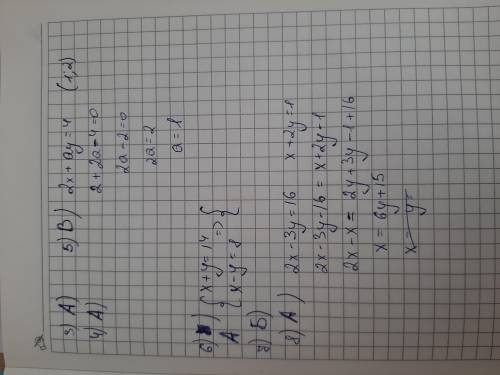 3) А)
4) А)
5) В) 2x + ay = 4 (1;2)
2 + 2a - 4 = 0
2a - 2 = 0
2a = 2
a = 1
6) А) { x + y = 14 => {
{ x - y = 8
7) Б)
8) А) 2x - 3y = 16 x + 2y = 1
2x - 3y - 16 = x + 2y - 1
2x - x = 2y + 3y - 1 + 16
x = 6y + 15